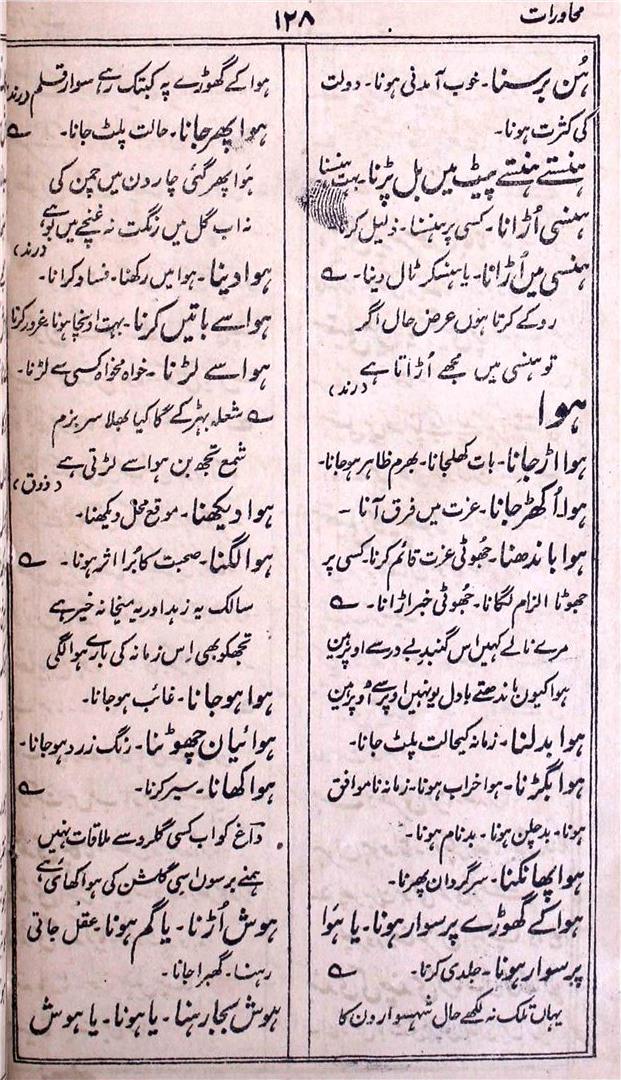 محاورات
۱۲۸
ہُن برسنا۔ خوب آمدنی ہونا۔ دولت
کی کثرت ہونا۔
ہنستے ہنستے پیٹ میں بل پڑنا۔ بہت ہنسنا
ہنسی اُڑانا۔ کسی پر ہنسنا۔ ذلیل کرنا
ہنسی میں اُڑانا۔ یا ہنسکر ٹال دینا۔ ؎
روکے کرتا ہوں عرض حال اگر
تو ہنسی میں مجھے اُڑاتا ہے
(رند)
ہوا
ہوا اڑجانا۔ بات کھلجانا۔ بھرم ظاہر ہوجانا۔
ہوا اُکھڑ جانا۔ عزت میں فرق آنا ۔
ہوا باندھنا۔ جھُوٹی عزت قائم کرنا۔ کسی پر
جھوٹا الزام لگانا۔ جھُوٹی خبر اڑانا۔ ؎
مرے نالے کہیں اس گنبد بے در سے اوپر ہین
ہوا کیوں باندھتے بادل یونہیں اوپر سے اوپر ہین
ہوا بدلنا۔ زمانہ کیحالت پلٹ جانا۔
ہوا بگڑنا۔ ہوا خراب ہونا۔ زمانہ ناموافق
ہونا۔ بدچلن ہونا۔ بدنام ہونا۔
ہوا پھانکنا۔ سرگردان پھرنا۔
ہوا کے گھوڑے پر سوار ہونا۔ یا ہَوا
پر سوار ہونا۔ جلدی کرنا۔ ؎
یہاں تلک نہ لکھے حال شہسوار دن کا
ہوا کے گھوڑے پہ کبتک رہے سوار قلم
(رند)
ہوا پھر جانا۔ حالت پلٹ جانا۔ ؎
ہَوا پھر گئی چار دن میں چمن کی
نہ اب گل میں رنگت نہ غنچے میں بو ہے
(رند)
ہوا دینا۔ ہوا میں رکھنا۔ فساد کرانا۔
ہوا سے باتیں کرنا۔ بہت اونچا ہونا غرور کرنا
ہوا سے لڑنا ۔ خواہ مخواہ کسی سے لڑنا۔
؎ شعلہ بہڑکے گا کیا بھلا سر بزم
شمع تجھ بن ہوا سے لڑتی ہے
(ذوق)
ہوا دیکھنا۔ موقع محل دیکھنا۔
ہوا لگنا۔ صحبت کا بُرا اثر ہونا۔ ؎
سالک یہ زہد اور یہ میخانہ خیر ہے
تجھکو بھی اِس زمانہ کی بارے ہوا لگی
ہوا ہوجانا۔ غائب ہوجانا۔
ہوائیان چھوٹنا۔ رنگ زرد ہوجانا۔
ہوا کھانا۔ سیر کرنا۔ ؎
داغ کو اب کسی گلرو سے ملاقات نہیں
ہمنے برسوں اسی گلشن کی ہوا کھائی ہے
ہوش اُڑنا۔ یا گم ہونا۔ عقل جاتی
رہنا۔ گھبرا جانا۔
ہوش بجا رہنا۔ یا ہونا۔ یا ہوش